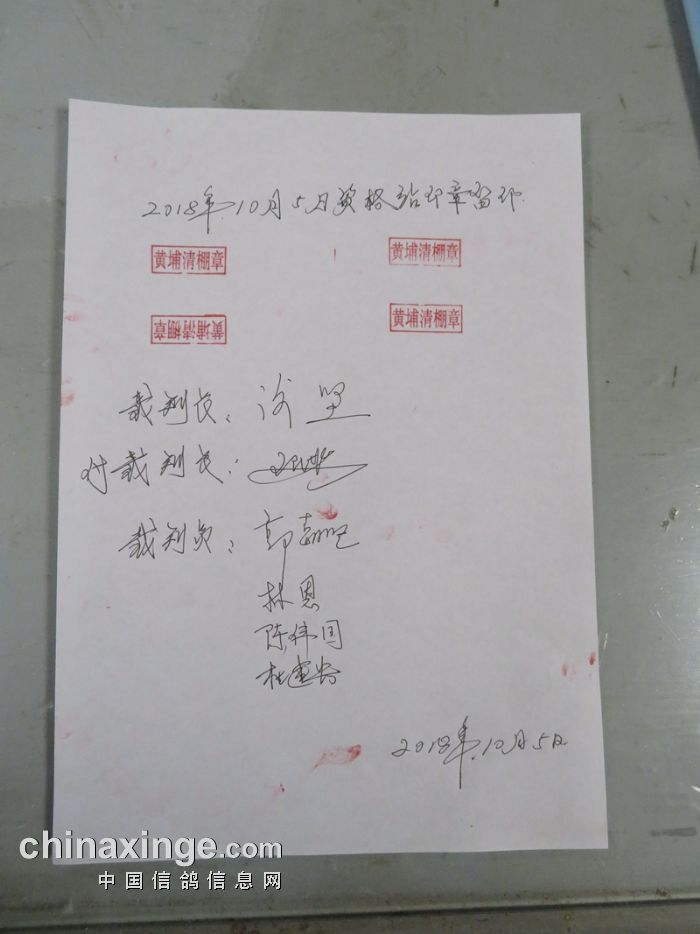 2018年10月5日资格站印章留印
黄埔清棚章 黄埔清棚章
黄埔清棚章 黄埔清棚章
裁判长：
付裁判长：
裁判员：郭
林恩
陈伟国
杜建
2018年10月5日
chinaxinge.com
中国信鸽信息网